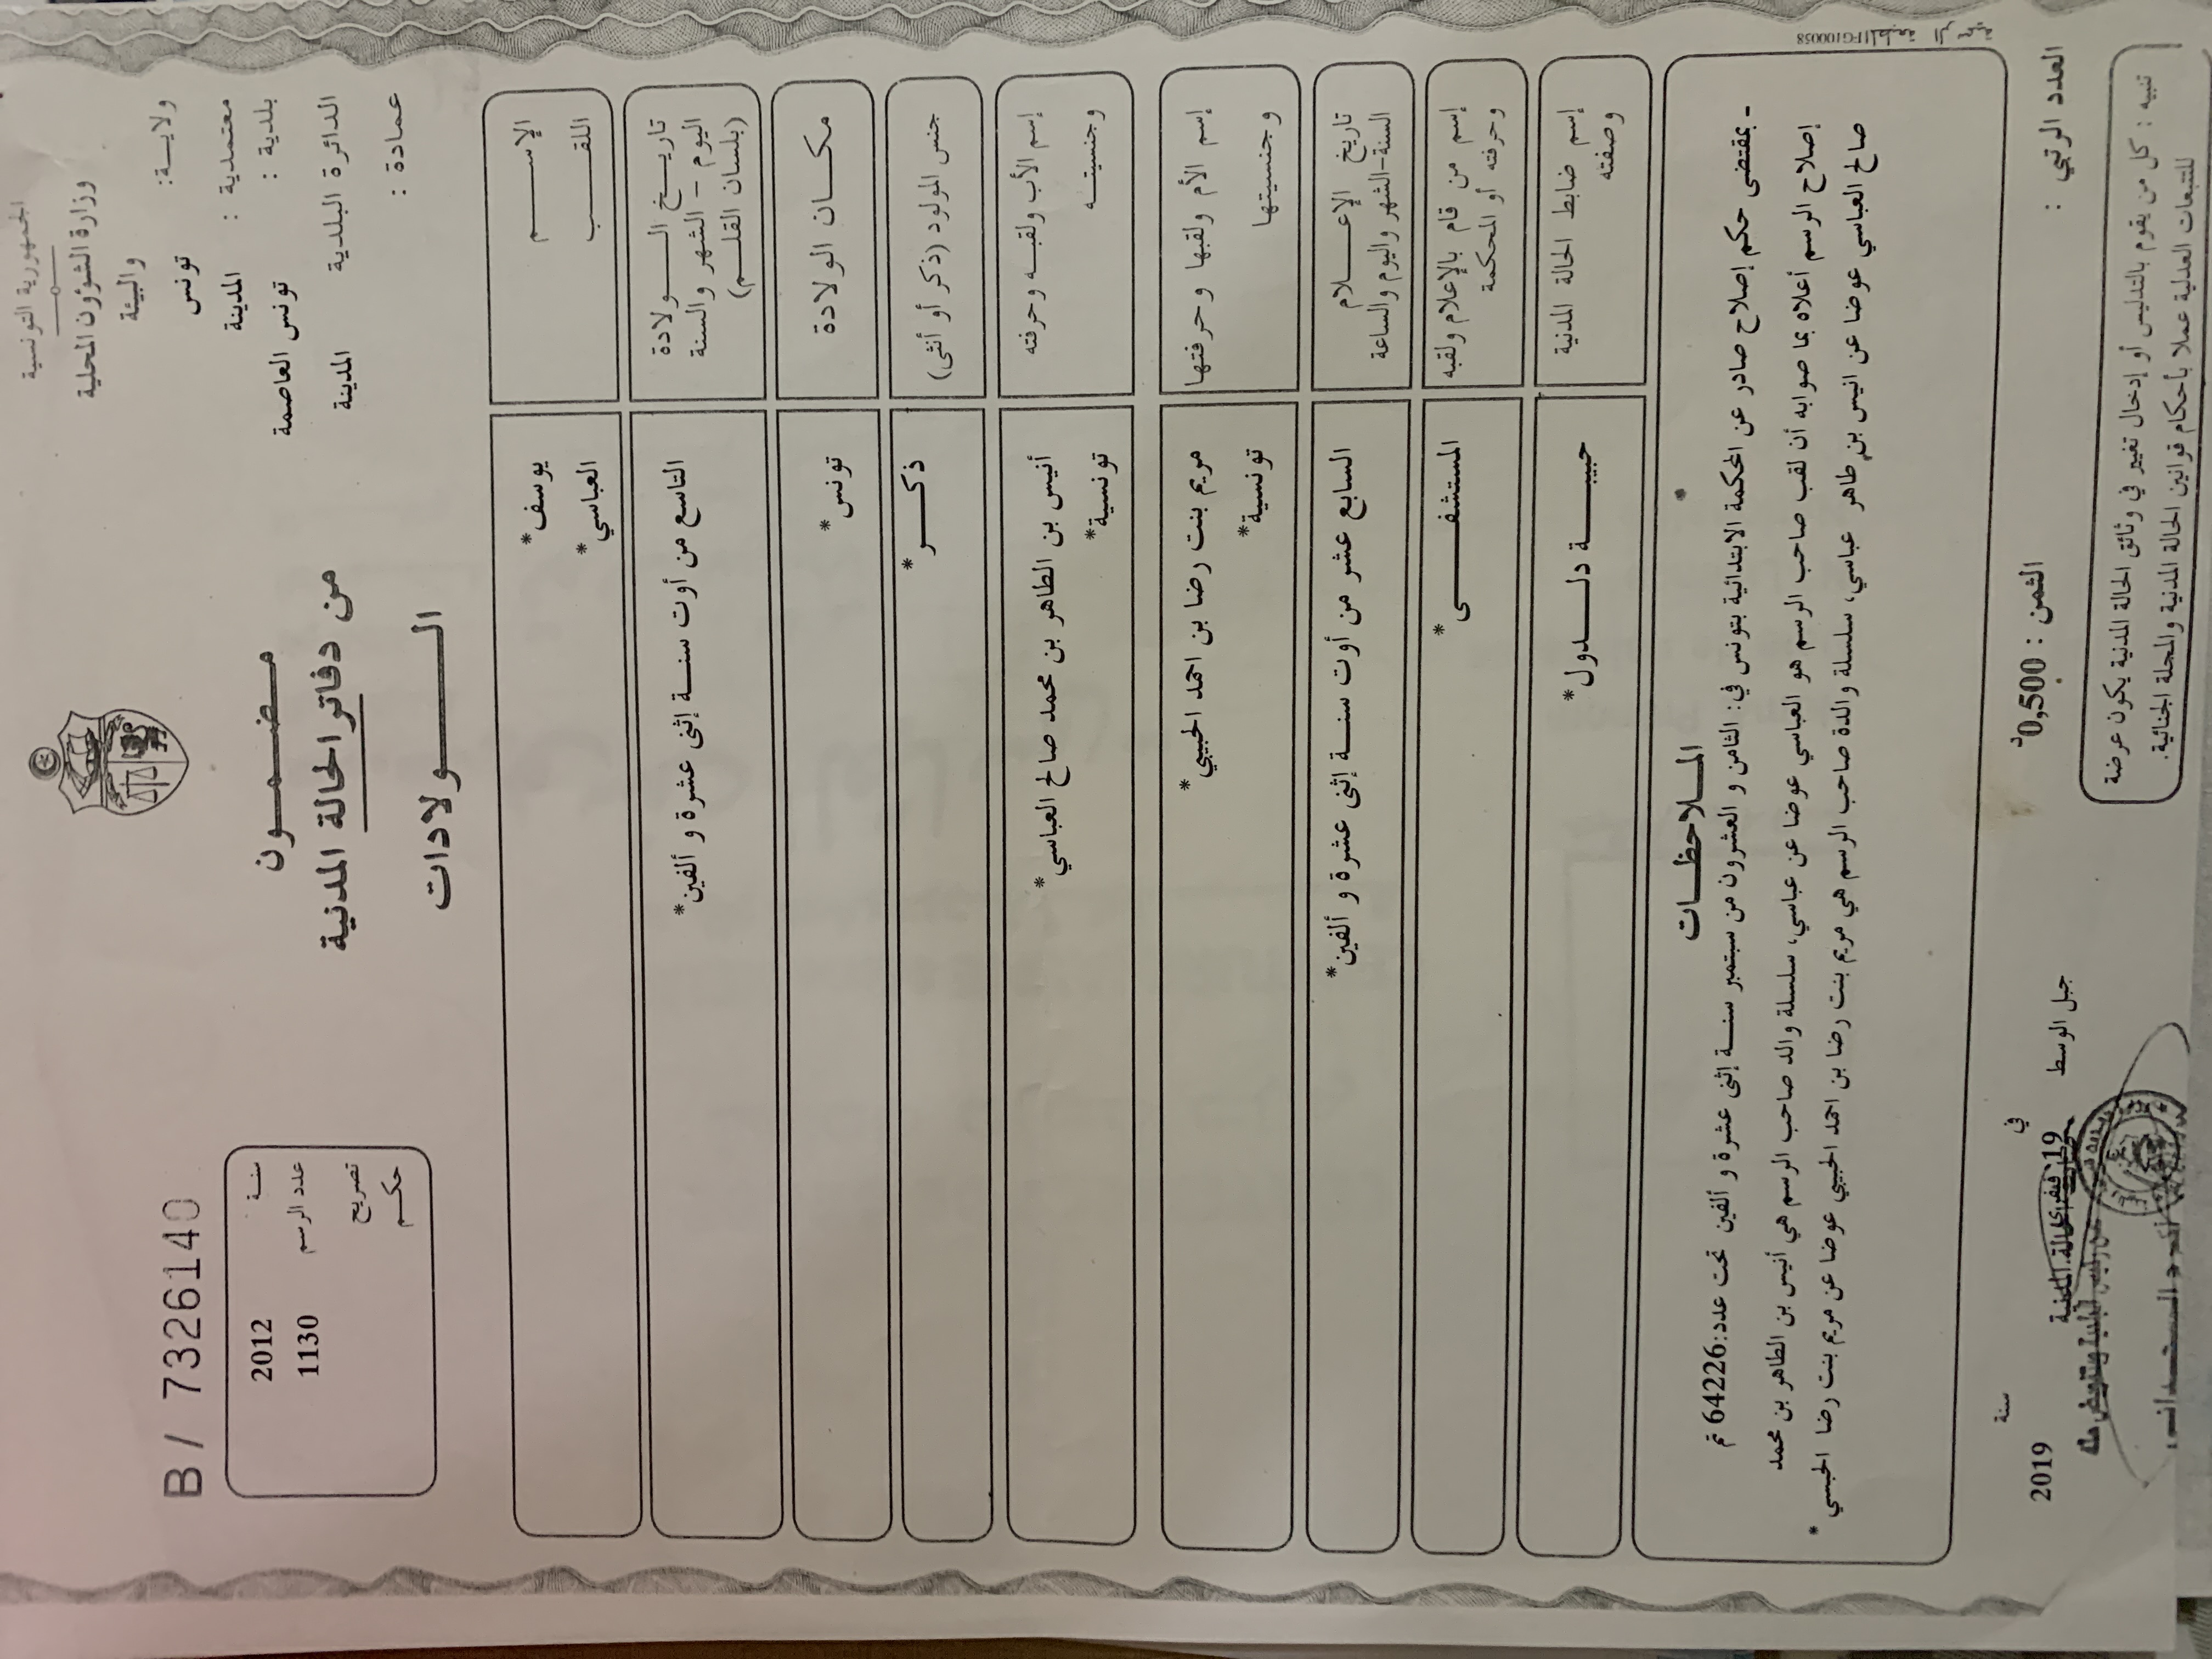 الجمهورية التونسية
وزارة الشؤون المحلية
والبيئة
ولايـــة: تونس
معتمدية : المدينة
بلدية : تونس العاصمة
الدائرة البلدية المدينة
عمادة :
مـضـمـــون
من دفاتر الحالة المدنية
الـــــولادات
B/ 7326140
سنــة 2012
عدد الرسم 1130
تصريح
حكـــم
الإســـــم يوسف*
اللقـــب العباسي*
تاريـــخ الـــــولادة
اليوم - الشهر والسنة
(بلسان القلـــم)
التاسع من أوت سنـــة إثنى عشرة و ألفين*
مكـــان الولادة تونس*
جنس المولود (ذكر أو أنثى) ذكـــر*
إسم الأب ولقبـه وحرفته أنيس بن الطاهر بن محمد صالح العباسي*
وجنسيتـــه تونسية*
إسم الأم ولقبها وحرفتها مريم بنت رضا بن احمد الحبيبي*
وجنسيتها تونسية*
تاريخ الإعـــلام
السنة-الشهر واليوم والساعة
السابع عشر من أوت سنـــة إثنى عشرة و ألفين*
إسم من قام بالإعلام ولقبه
وحرفته أو المحكمة
المستشفـــــى*
إسم ضابط الحالة المدنية
وصفته
حبيبـــــة دلـــدول*
المـــلاحظـــات
- بمقتضى حكم إصلاح صادر عن المحكمة الابتدائية بتونس في: الثامن و العشرون من سبتمبر سنـــة إثنى عشرة و ألفين تحت عدد:64226 تم
إصلاح الرسم أعلاه بما صوابه أن لقب صاحب الرسم هو العباسي عوضا عن عباسي، سلسلة والد صاحب الرسم هي أنيس بن الطاهر بن محمد
صالح العباسي عوضا عن انيس بن طاهر عباسي، سلسلة والدة صاحب الرسم هي مريم بنت رضا بن احمد الحبيبي عوضا عن مريم بنت رضا الحبسي*
المطبعة الرسمية FG100058
العدد الرتبي :
الثمن : 0,500د
جبل الوسط في 19 سنة 2019
تنبيه : كل من يقوم بالتدليس أو إدخال تغيير في وثائق الحالة المدنية يكون عرضة
للتتبعات العدلية عملا بأحكام قوانين الحالة المدنية والمجلة الجنائية.